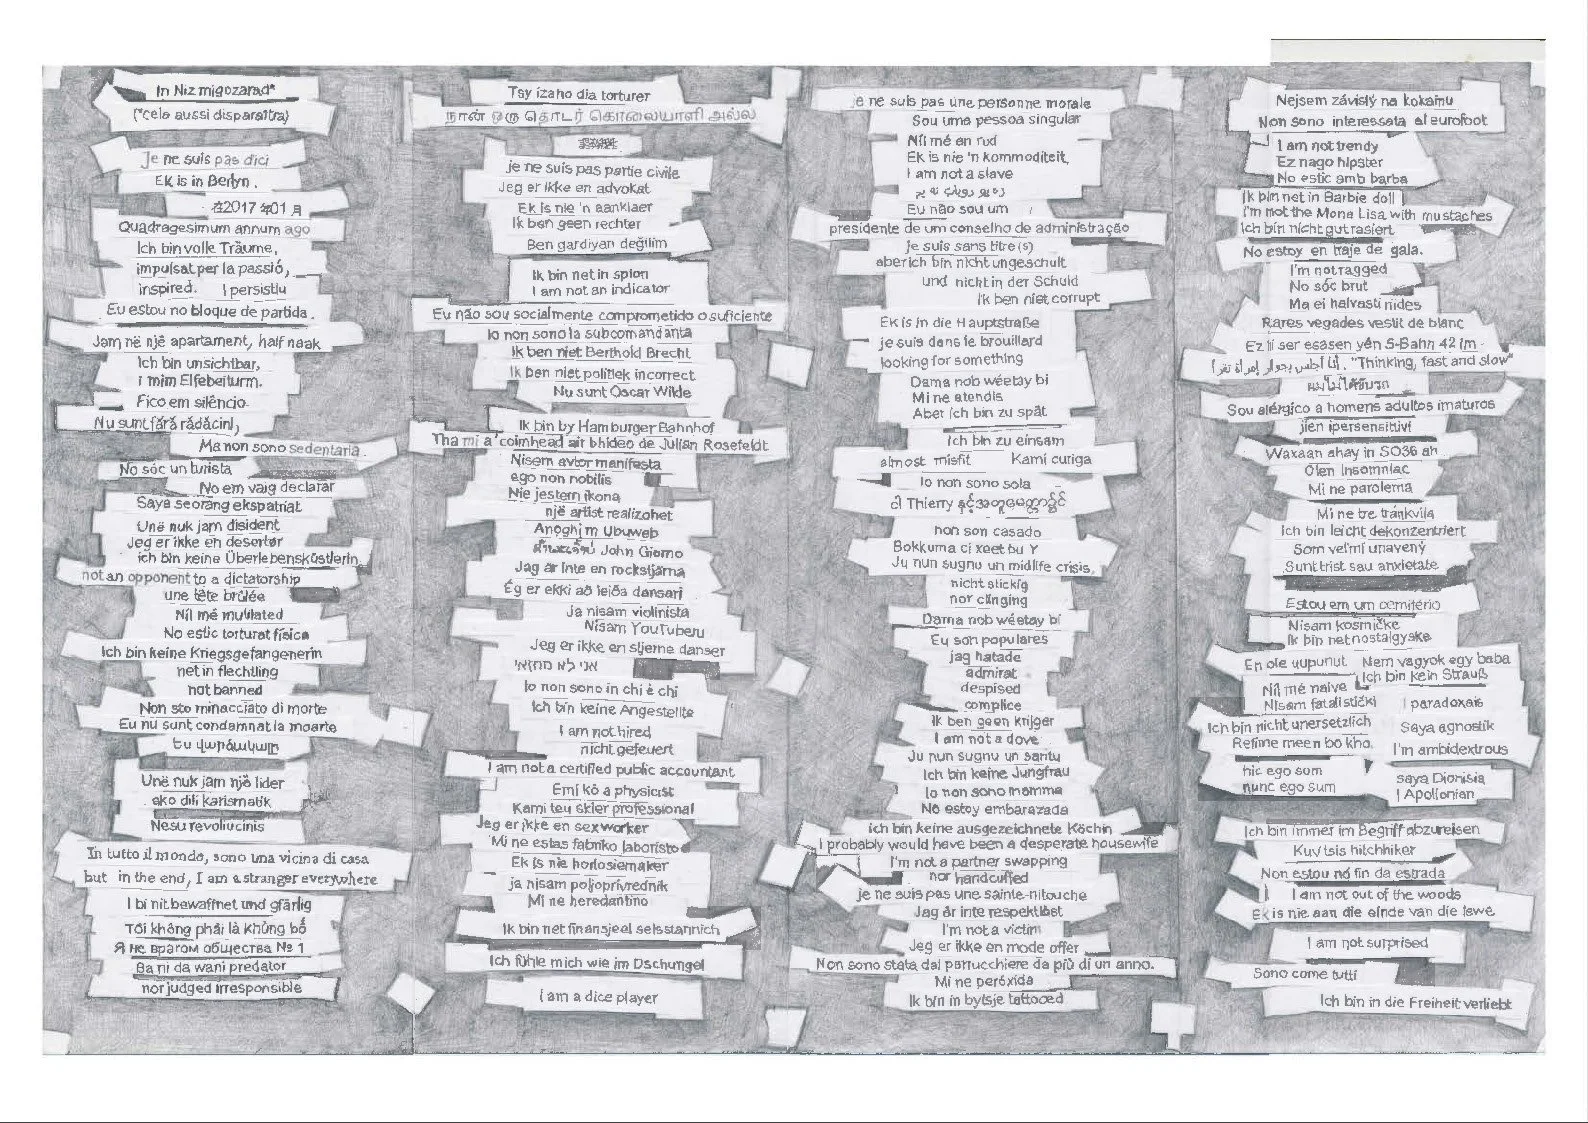 In Niz migozarad*
(*Cela aussi disparaîtra)
Je ne suis pas d'ici
Ek is in Berlyn .
在2017 年01 月
Quadragesimum annum ago
Ich bin volle Träume,
impulsat per la passió,
inspired. I persistiu
Eu estou no bloque de partida .
Jam në një apartament, half naak
Ich bin unsichtbar,
i mim Elfebeiturm.
Fico em silêncio
Nu sunt fără rădăcini,
Ma non sono sedentaria .
No sóc un turista
No em vaig declarar
Saya seorang ekspatriat
Unë nuk jam disident
Jeg er ikke en desertør
ich bin keine Überlebensküstlerin
not an opponent to a dictatorship
une tête brûlée
Níl mé mutilated
No estic torturat física
Ich bin keine Kriegsgefangenerin
net in flechtling
not banned
Non sto minacciato di morte
Eu nu sunt condamnat la moarte
Unë nuk jam një lider
ako dili karismatik
Nesu revoliucinis
In tutto il mondo, sono una vicina di casa
but in the end, I am a stranger everywhere
I bi nit bewaffnet und gfärlig
Tôi không phải là khủng bố
Я не врагом общества № 1
Ba ni da wani predator
nor judged irresponsible
Tsy izaho dia torturer
நான் ஒரு தொடர் கொலையாளி அல்ல
je ne suis pas partie civile
Jeg er ikke en advokat
Ek is nie 'n aanklaer
Ik ben geen rechter
Ben gardiyan değilim
Ik bin net in spion
I am not an indicator
Eu não soy socialmente comprometido o suficiente
Io non sono la subcomandanta
Ik ben niet Berthold Brecht
Ik ben niet politiek incorrect
Nu sunt Oscar Wilde
Ik bin by Hamburger Bahnhof
Tha mi a' coimhead air bhideo de Julian Rosefeldt
Nisem avtor manifesta
ego non nobilis
Nie jestem ikona
një artist realizohet
Anoghị m Ubuweb
John Giorno
Jag är inte en rockstjärna
Ég er ekki að leiða dansari
Ja nisam violinista
Nisam YouTuberu
Jeg er ikke en stjerne danser
אני לא מחזאי
Io non sono in chi è chi
Ich bin keine Angestellte
I am not hired
nicht gefeuert
I am not a certified public accountant
Emi kò a physicist
Kami teu skier professional
Jeg er ikke en sexworker
Mi ne estas fabriko laboristo
Ek is nie horlosiemaker
ja nisam poljoprivrednik
Mi ne heredantino
Ik bin net finansjeel selsstannich
Ich fühle mich wie im Dschungel
I am a dice player
je ne suis pas une personne morale
Sou uma pessoa singular
Níl mé an rud
Ek is nie 'n kommoditeit,
I am not a slave
Eu não sou um
presidente de um conselho de administração
je suis sans titre(s)
aber ich bin nicht ungeschult
und nicht in der Schuld
Ik ben niet corrupt
Ek is in die Hauptstraße
je suis dans le brouillard
looking for something
Dama nob wéetay bi
Mi ne atendis
Aber ich bin zu spät
Ich bin zu einsam
almost misfit Kami curiga
Io non sono sola
Thierry
non son casado
Bokkuma ci xeet bu Y
Ju nun sugnu un midlife crisis,
nicht stickig
nor clinging
Dama nob wéetay bi
Eu son populares
jag hatade
admirat
despised
complice
Ik ben geen krijger
I am not a dove
Ju nun sugnu un santu
Ich bin keine Jungfrau
Io non sono mamma
No estoy embarazada
ich bin keine ausgezeichnete Köchin
I probably would have been a desperate housewife
I'm not a partner swapping
nor handcuffed
je ne suis pas une sainte-nitouche
Jag är inte respektlöst
I'm not a victim
Jeg er ikke en mode offer
Non sono stata dal parrucchiere da più di un anno.
Mi ne peróxida
Ik bin in bytsje tattooed
Nejsem závislý na kokainu
Non sono interessata al eurofoot
I am not trendy
Ez nago hipster
No estic amb barba
Ik bin net in Barbie doll
I'm not the Mona Lisa with mustaches
Ich bin nicht gut rasiert
No estoy en traje de gala.
I'm not ragged
No sóc brut
Ma ei halvasti riides
Rares vegades vestit de blanc
Ez li ser esasen yên S-Bahn 42 im
أنا أجلس بجوار إمرأة تقرأ . "Thinking, fast and slow"
Sou alérgico a homens adultos imaturos
jien ipersensittivi
Waxaan ahay in SO36 ah
Olen insomniac
Mi ne parolema
Mi ne tre trankvila
Ich bin leicht dekonzentriert
Som veľmi unavený
Sunt trist sau anxietate
Estou em um cemitério
Nisam kosmičke
Ik bin net nostalgyske
En ole uupunut Nem vagyok egy baba
Ich bin kein Strauß
Níl mé naive
Nisam fatalistički I paradoxais
Ich bin nicht unersetzlich Saya agnostik
Refine meen bo kho. I'm ambidextrous
hic ego sum
nunc ego sum
saya Dionisia
I Apollonian
Ich bin immer im Begriff abzureisen
Kuv tsis hitchhiker
Non estou nó fin da estrada
I am not out of the woods
Ek is nie aan die einde van die lewe
I am not surprised
Sono come tutti
Ich bin in die Freiheit verliebt